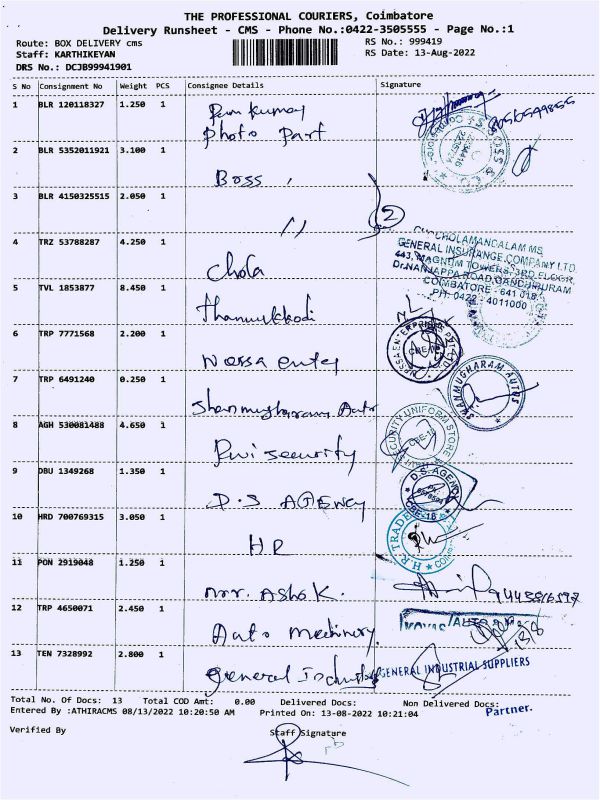 THE PROFESSIONAL COURIERS, Coimbatore
Delivery Runsheet - CMS - Phone No.:0422-3505555 - Page No.:1
Route: BOX DELIVERY cms
RS No.: 999419
Staff: KARTHIKEYAN
RS Date: 13-Aug-2022
DRS No.: DCJB99941901
S No Consignment No Weight PCS Consignee Details Signature
1 BLR 120118327 1.250 1
Photo Part
2 BLR 5352011921 3.100 1
Boss
3 BLR 4150325515 2.050 1
"
2
4 TRZ 53788287 4.250 1
Chola
CHOLAMANDALAM MS
GENERAL INSURANCE COMPANY LTD
443, MAGNUM TOWERS, 3RD FLOOR
Dr.NANJAPPA ROAD, GANDHIPURAM
COIMBATORE - 641 018.
PH: 0422 - 4011000
5 TVL 1853877 8.450 1
6 TRP 7771568 2.200 1
Nessa enter
NESSA ENTERPRISES PVT LTD
CBE-18
7 TRP 6491240 0.250 1
Shanmugharam Auto
SHANMUGHARAM AUTOS
8 AGH 530081488 4.650 1
security
SECURITY UNIFORM STORE
CBE-18
9 DBU 1349268 1.350 1
D.S AGENCY
D.S. AGENCY
CBE-18
10 HRD 700769315 3.050 1
HR
H.R TRADE
11 PON 2919048 1.250 1
mr. Ashok.
12 TRP 4650071 2.450 1
Auto Machinery
13/8
13 TEN 7328992 2.800 1
General Industrial
GENERAL INDUSTRIAL SUPPLIERS
Partner.
Total No. Of Docs: 13 Total COD Amt: 0.00 Delivered Docs: Non Delivered Docs:
Entered By :ATHIRACMS 08/13/2022 10:20:50 AM Printed On: 13-08-2022 10:21:04
Verified By Staff Signature